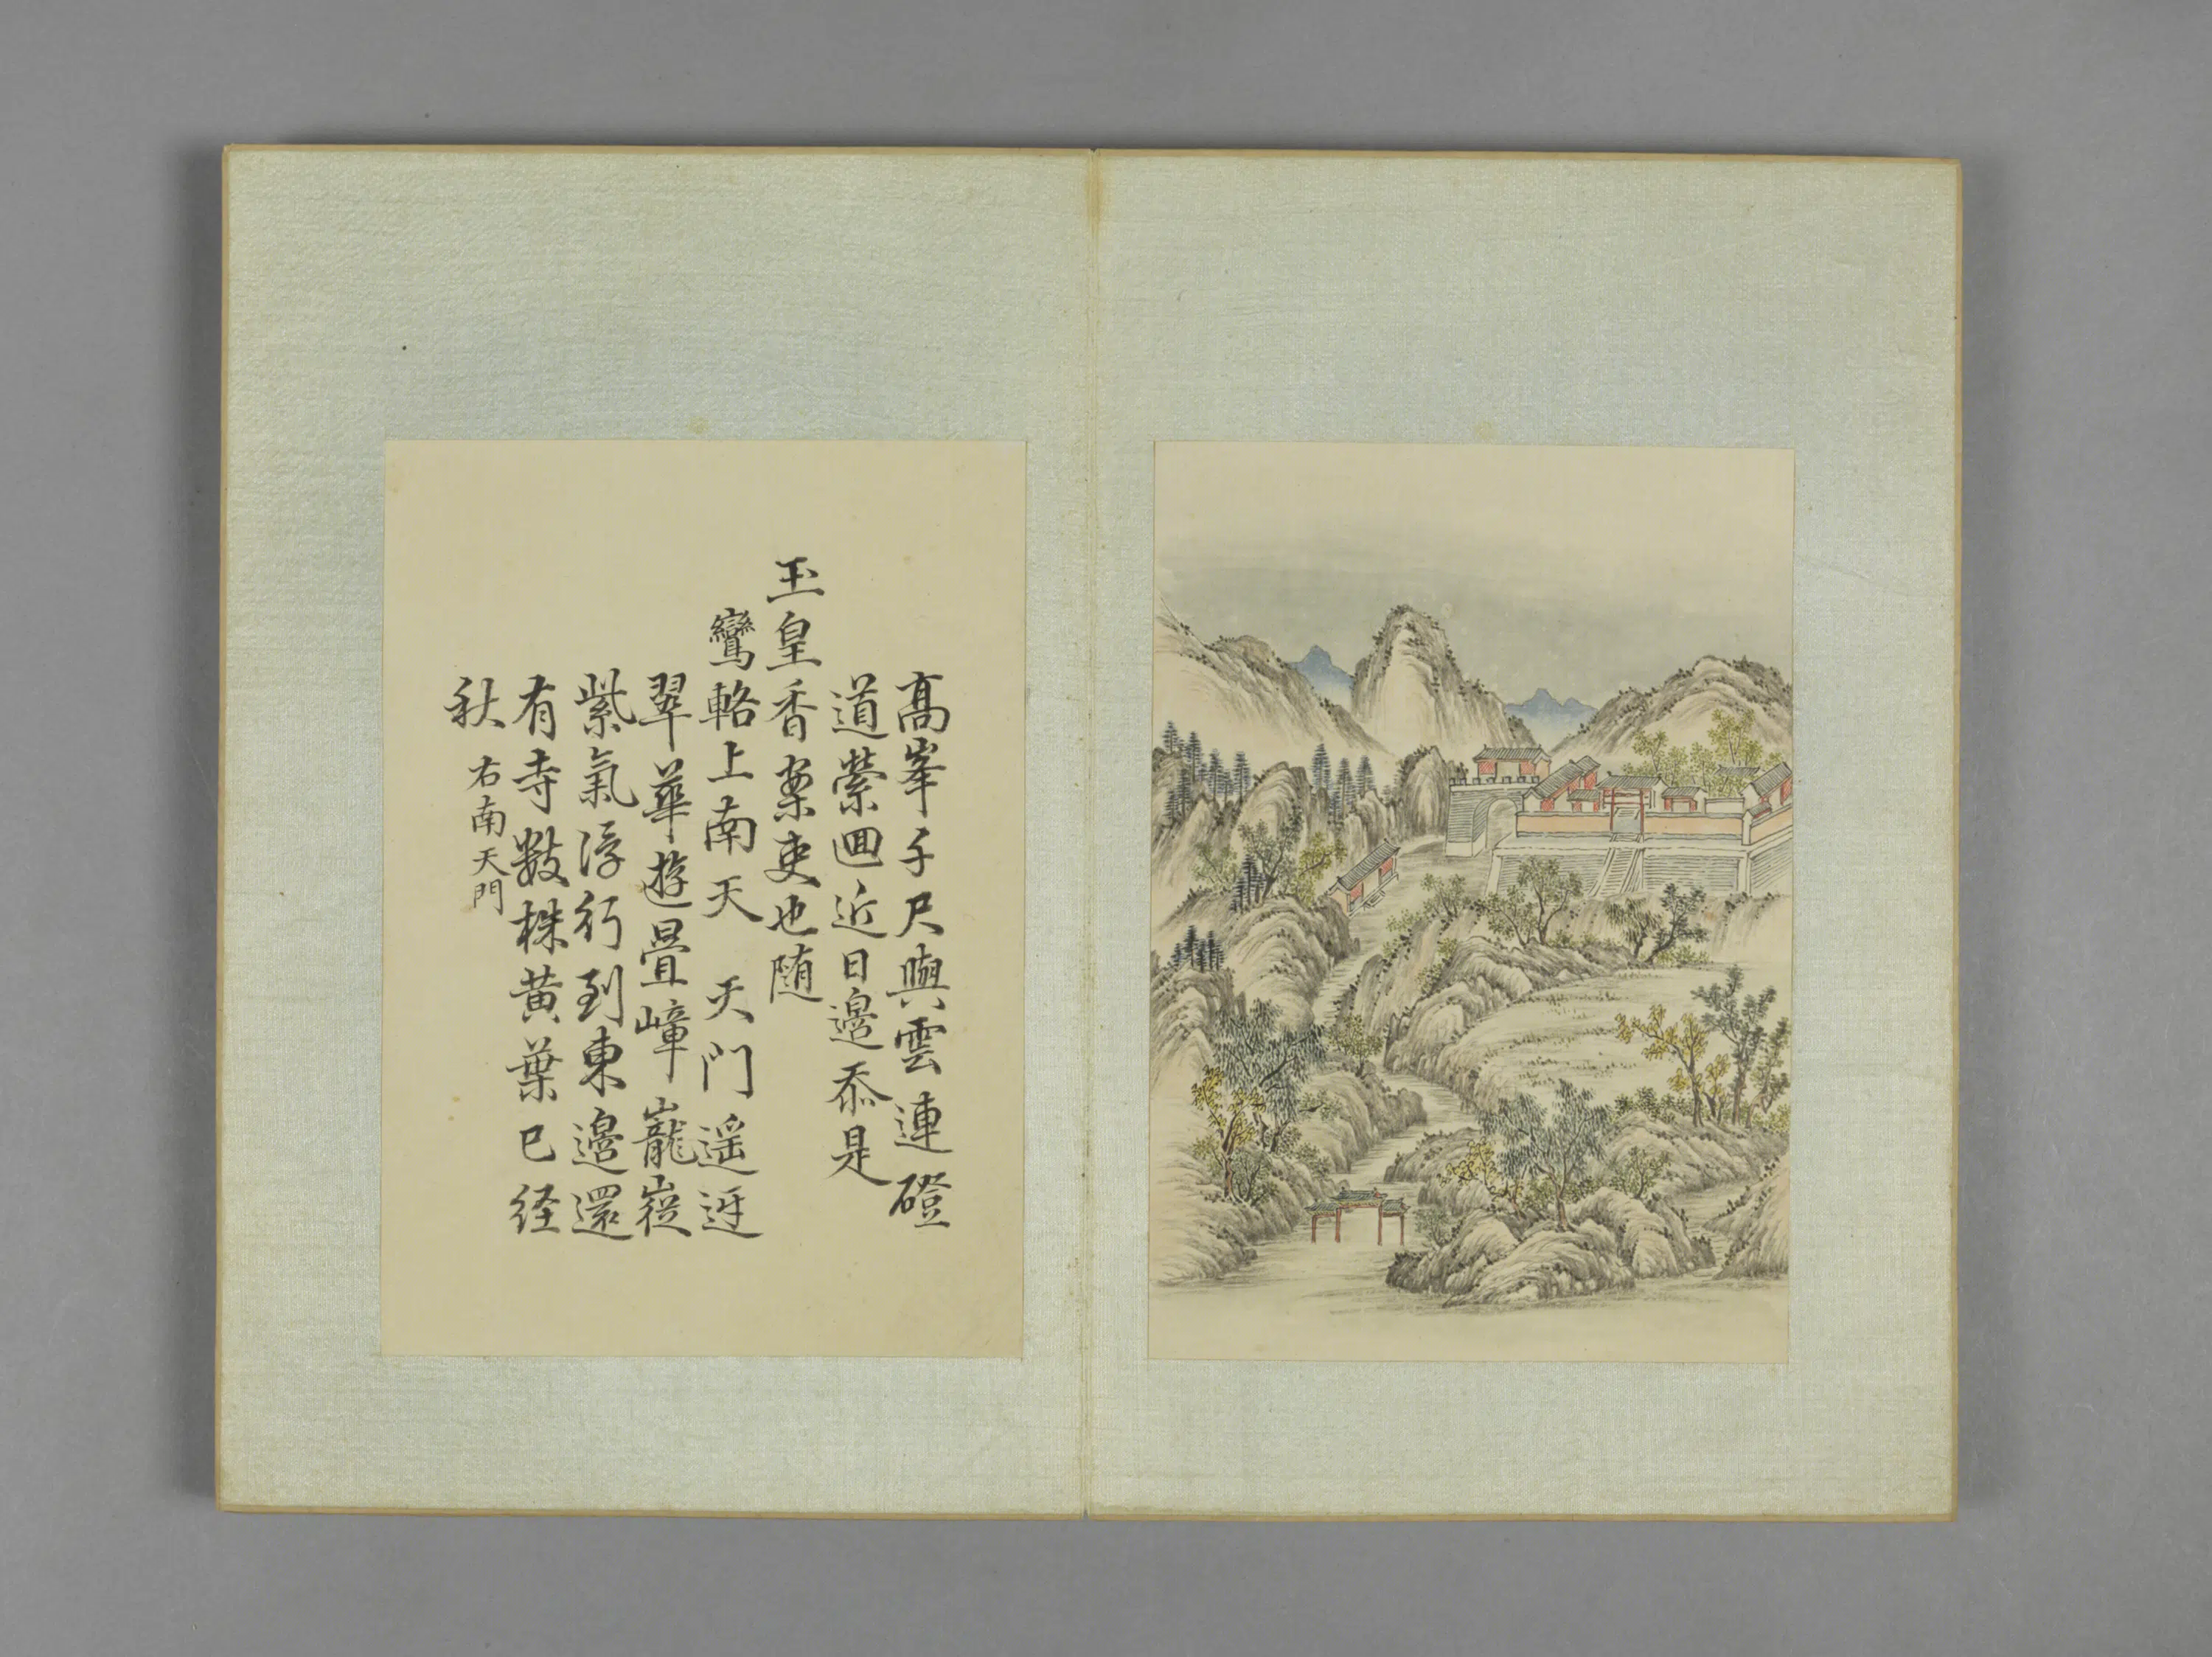 高峯千尺與雲連磴
道縈迴近日邊忝是
玉皇香案吏也随
鸞輅上南天 天門遥迓
翠華遊疊嶂巃嵷
紫氣浮行到東邊還
有寺數株黄葉已经
秋
右南天門